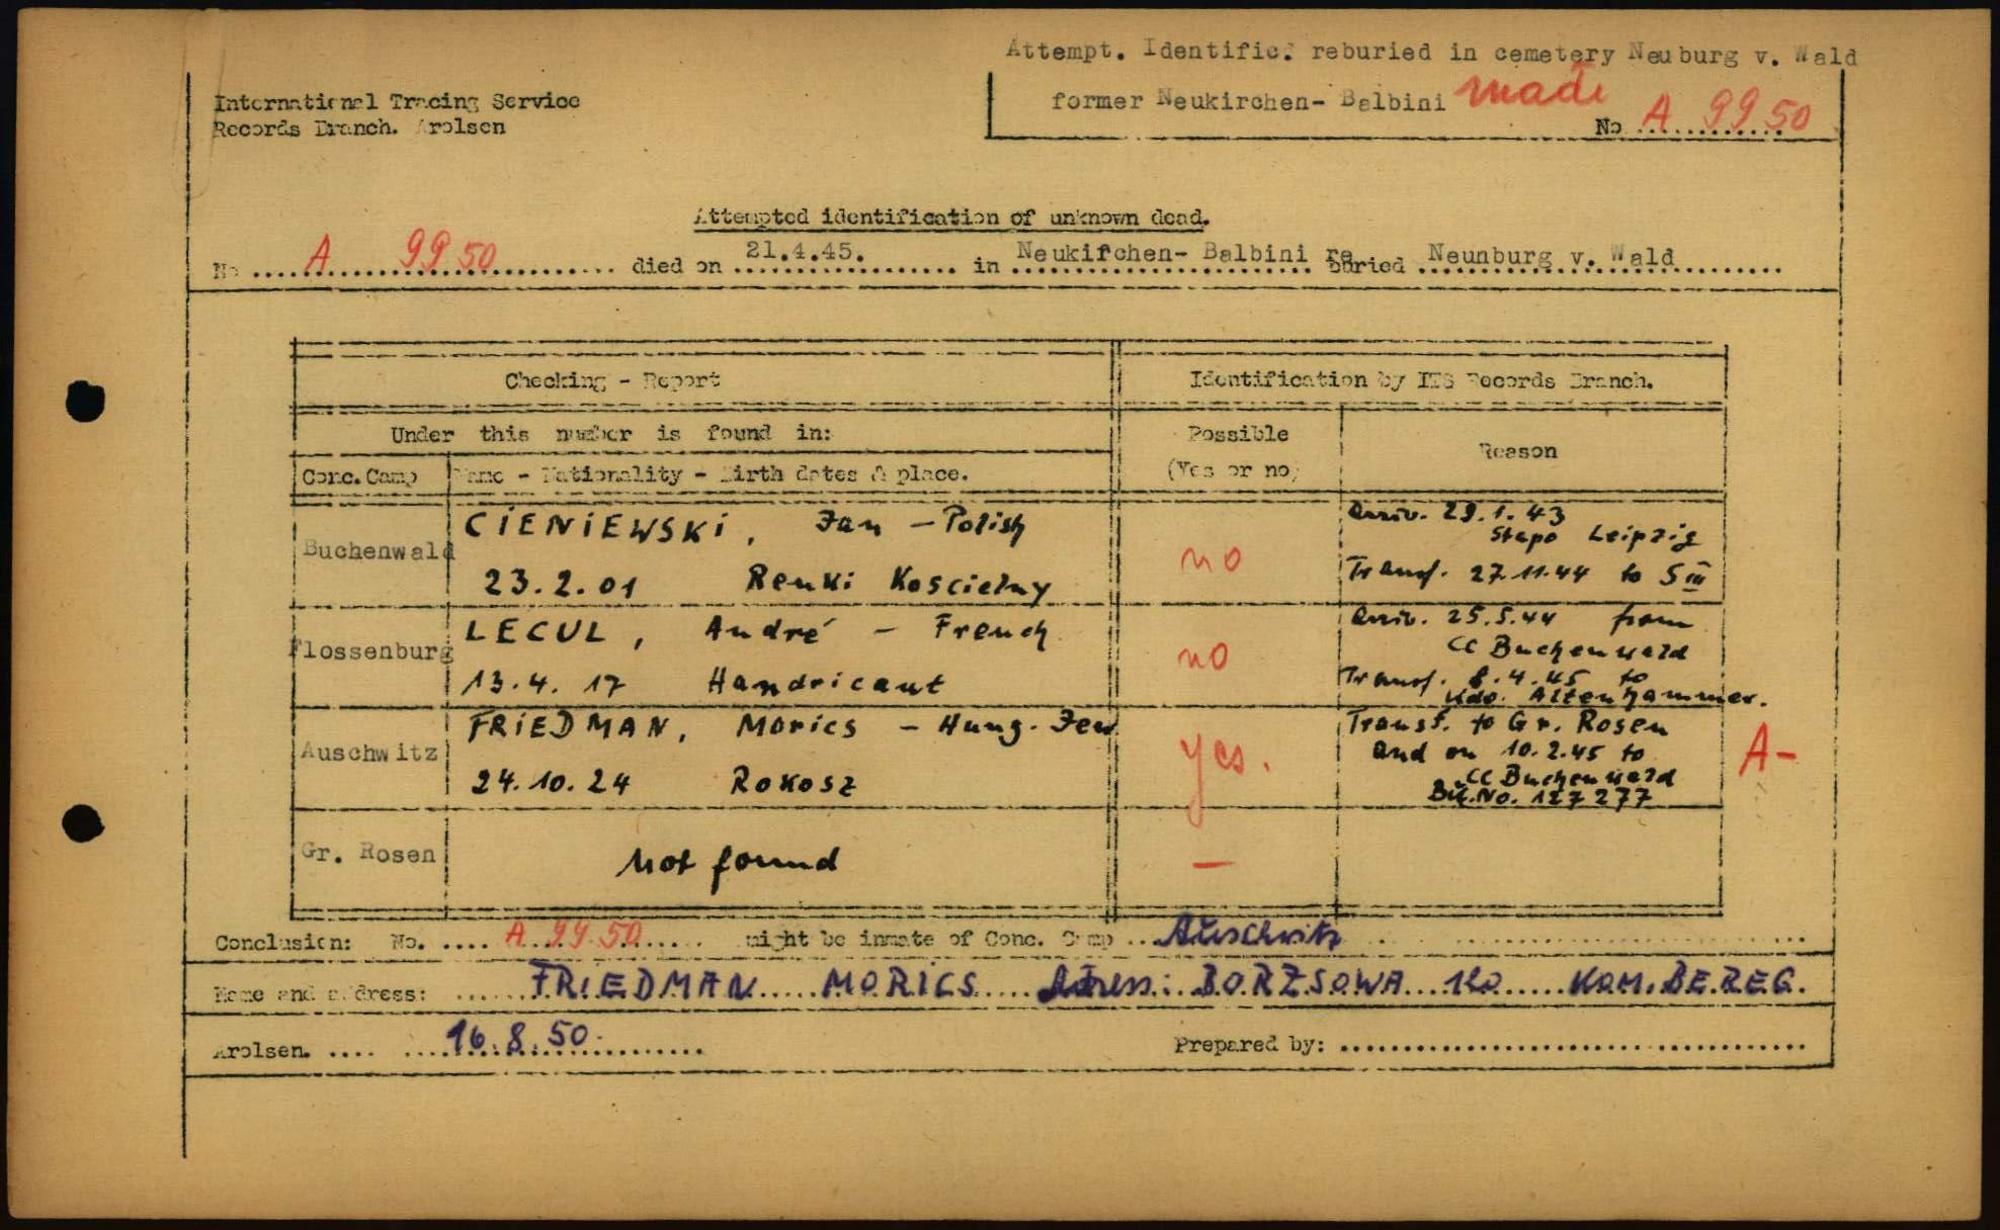 Attempt. Identific. reburied in cemetery Neuburg v. Wald
former Neukirchen- Balbini made
No A 9950
International Tracing Service
Records Branch. Arolsen
Attempted identification of unknown dead.
No .... A 9950 .... died on 21.4.45. in Neukirchen- Balbini re buried Neunburg v. Wald
Checking - Report
Identification by ITS Records Branch.
Under this number is found in:
Possible
(Yes or no)
Reason
Conc. Camp
Name - Nationality - Birth dates & place.
Buchenwald
CIENIEWSKI, Jan - Polish
23.2.01 Renki Koscielny
no
Arriv. 29.1.43
Stapo Leipzig
Transf. 27.11.44 to S III
Flossenburg
LECUL, André - French
13.4.17 Handricaut
no
Arriv. 25.5.44 from
CC Buchenwald
Transf. 8.4.45 to
Kdo. Altenhammer.
Auschwitz
FRIEDMAN, Morics - Hung. Jew
24.10.24 Rokosz
yes.
Transf. to Gr. Rosen
and on 10.2.45 to
CC Buchenwald
Bu.No. 127277
A-
Gr. Rosen
not found
—
Conclusion: No. .... A 9950 .... might be inmate of Conc. Camp ... Auschwitz
Name and address: ...... FRIEDMAN MORICS Adress: BORZSOWA 120 KOM. BEREG.
Arolsen. .... 16.8.50.
Prepared by: ......